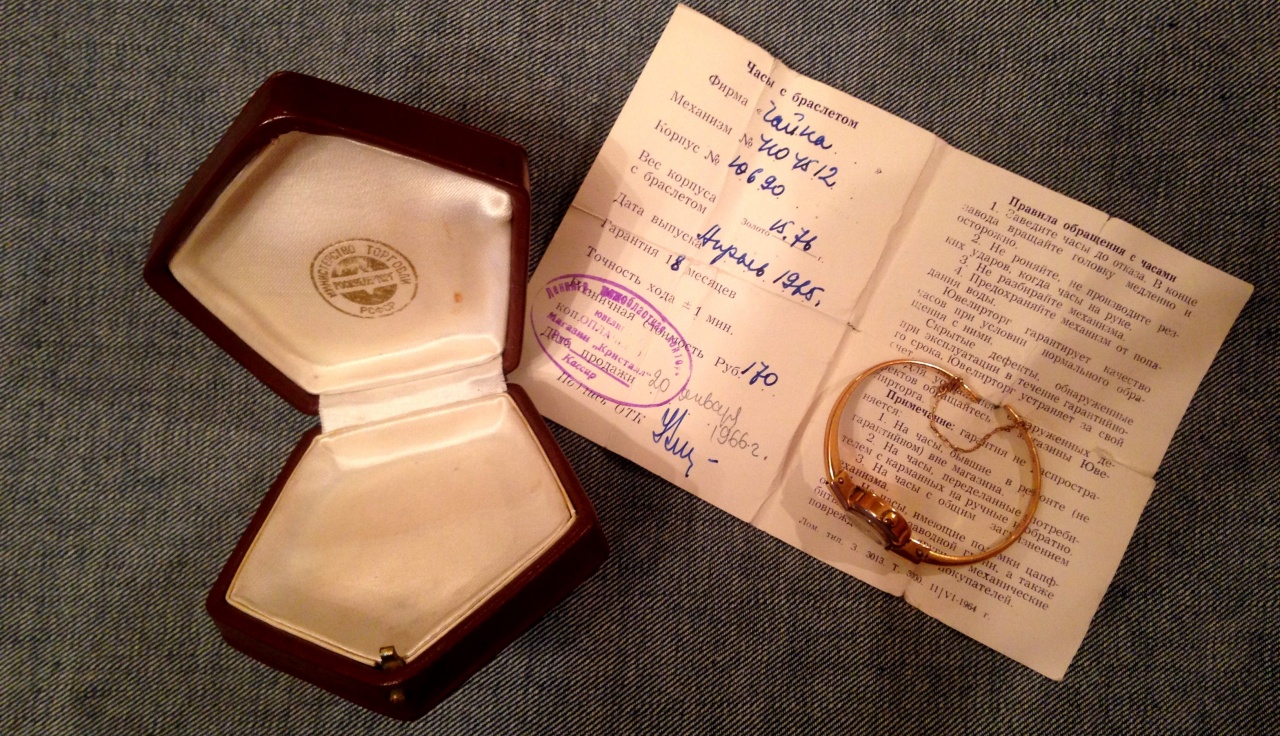 МИНИСТЕРСТВО ТОРГОВЛИ
РСФСР
Часы с браслетом
Фирма „Чайка"
Механизм № 4104512
Корпус № 10690
Вес корпуса
с браслетом
Золото 15.76 г.
Дата выпуска Апрель 1965г.
Гарантия 18 месяцев
Точность хода ± 1 мин.
Розничная стоимость Руб. 170
коп.
Дата продажи 20 января 1966 г.
Подпись ОТК
Магазин „Кристалл"
Кассир
Правила обращения с часами
1. Заведите часы до отказа. В конце
завода вращайте головку медленно и
осторожно.
2. Не роняйте, не производите рез-
ких ударов, когда часы на руке.
3. Не разбирайте механизма.
4. Предохраняйте механизм от попа-
дания воды.
Ювелирторг гарантирует качество
часов при условии нормального обра-
щения с ними.
Скрытые дефекты, обнаруженные
при эксплуатации в течение гарантийно-
го срока, Ювелирторг устраняет за свой
счет.
Для обнаруженных де-
фектов обращайтесь магазины Юве-
лирторга.
Примечание: гарантия не распростра-
няется:
1. На часы, бывшие в ремонте (не
гарантийном) вне магазина.
2. На часы, переделанные потреби-
телем с карманных на ручные и обратно.
3. На часы с общим загрязнением
механизма.
часы, имеющие поломки цапф
заводной а также
механические
повреж покупателей.
Лом. тип. З. 3013. Т. 11/VI-1964 г.